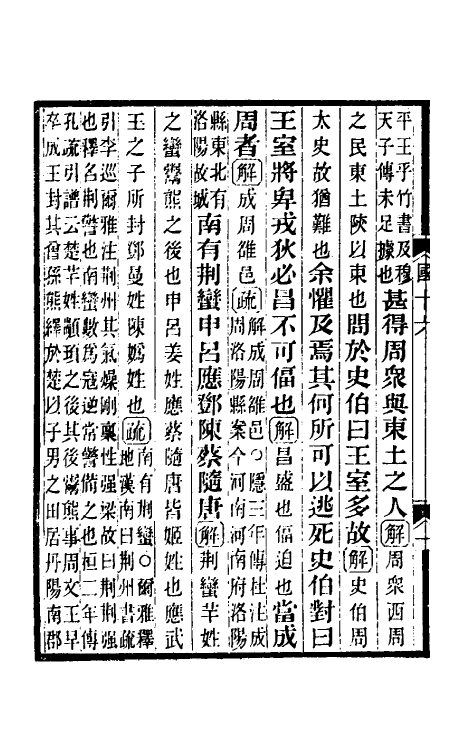 國十六
平王乎竹書及穆
天子傳未足據也
甚得周眾與東土之人解周眾西周
之民東土陝以東也問於史伯曰王室多故解史伯周
太史故猶難也余懼及焉其何所可以逃死史伯對曰
王室將卑戎狄必昌不可偪也解昌盛也偪迫也當成
周者解成周雒邑疏
解成周雒邑○隱三年傳杜注成
周洛陽縣案今河南河南府洛陽
縣東北有
洛陽故城
南有荆蠻申呂應鄧陳蔡隨唐解荆蠻芈姓
之蠻鬻熊之後也申呂姜姓應蔡隨唐皆姬姓也應武
王之子所封鄧曼姓陳媯姓也疏
南有荆蠻○爾雅釋
地漢南曰荆州書疏
引李巡爾雅注荆州其氣燥剛稟性强梁故曰荆荆强
也釋名荆警也南蠻數爲寇逆常警備之也桓二年傳
孔疏引譜云楚芈姓顓頊之後其後鬻熊事周文王早
卒成王封其曾孫熊繹於楚以子男之田居丹陽南郡